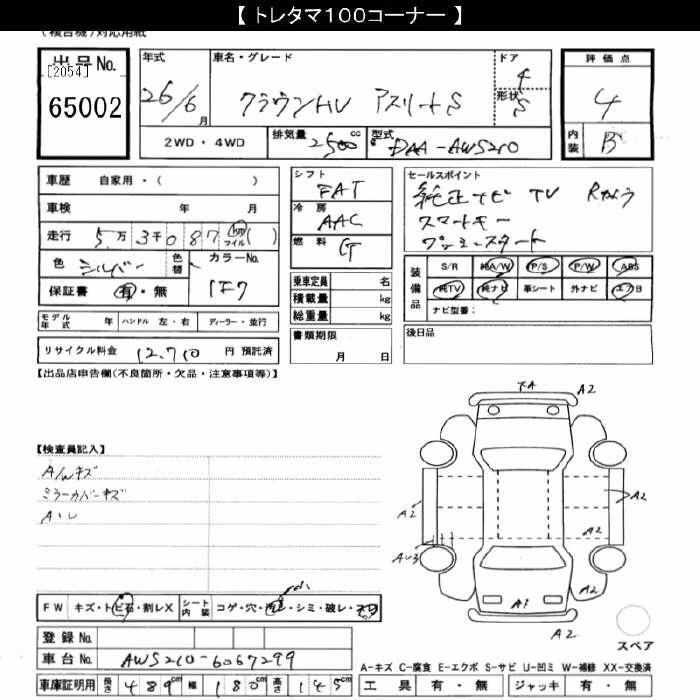 【 トレタマ１００コーナー 】
(複合機)対応用紙
出品No.
[2054]
65002
年式
26/6月
車名・グレード
クラウンHV アスリートS
ドア
4
形状
S
評価点
4
内装
B
2WD・4WD
排気量 2500cc
型式 DAA-AWS210
車歴 自家用・( )
車検 年 月
走行 5万3千087 km マイル ( )
色 シルバー 色替
カラーNo.
1F7
保証書 有・無
モデル年式 年 ハンドル 左・右 ディーラー・並行
リサイクル料金 12,710 円 預託済
シフト
FAT
冷房
AAC
燃料
乗車定員 名
積載量 kg
総重量 kg
書類期限
月 日
セールスポイント
純正ナビ TV Rカメラ
スマートキー
プッシュスタート
装備品
S/R 純A/W P/S P/W ABS
純TV 純ナビ 革シート 外ナビ エアB
ナビ型番：
後日品
【出品店申告欄(不良箇所・欠品・注意事項等)】
【検査員記入】
A/Wキズ
ミラーカバーキズ
A2
A2
A2
A2
A2
A2
A1
A2
FW キズ・トビ石・割レX
シート内装 コゲ・穴・ ・シミ・破レ・
登録No.
車台No. AWS210-6067299
車庫証明用 長さ 489cm 幅 180cm 高さ 145cm
スペア
A-キズ C-腐食 E-エクボ S-サビ U-凹ミ W-補修 XX-交換済
工具 有・無 ジャッキ 有・無